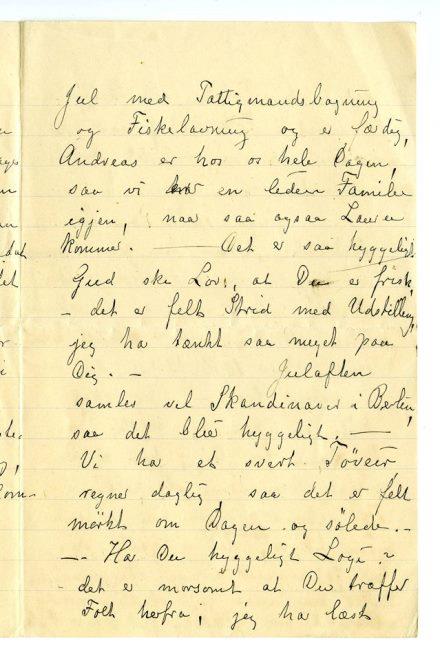 Jul med Fattigmandsbagning
og Fiskelavning og er færdig,
Andreas er hos os hele Dagen,
saa vi er en liden Familie
igjen, naar saa ogsaa Lauren
kommer. — Det er saa hyggeligt
Gud ske Lov, at Du er frisk,
- det er felt Strid med Udstilling,
jeg ha tænkt saa meget paa
Dig. - Julaften
samles vel Skandinaver i Berlin,
saa det blier hyggeligt. —
Vi ha et svert Töveir
regner daglig, saa det er felt
mörkt om Dagen og sölede. -
- Har Du hyggeligt Logi?
det er morsomt at Du træffer
Folk herfra; jeg ha læst